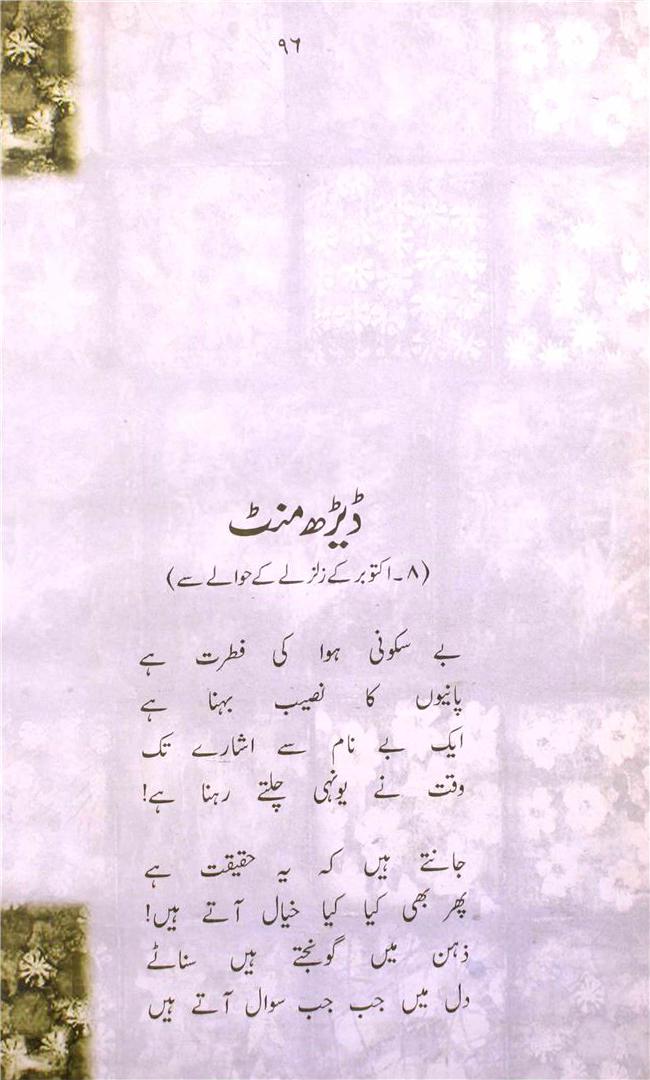 ۹۶
ڈیڑھ منٹ
(۸۔ اکتوبر کے زلزلے کے حوالے سے)
بے سکونی ہوا کی فطرت ہے
پانیوں کا نصیب بہنا ہے
ایک بے نام سے اشارے تک
وقت نے یونہی چلتے رہنا ہے!
جانتے ہیں کہ یہ حقیقت ہے
پھر بھی کیا کیا خیال آتے ہیں!
ذہن میں گونجتے ہیں سناٹے
دل میں جب جب سوال آتے ہیں